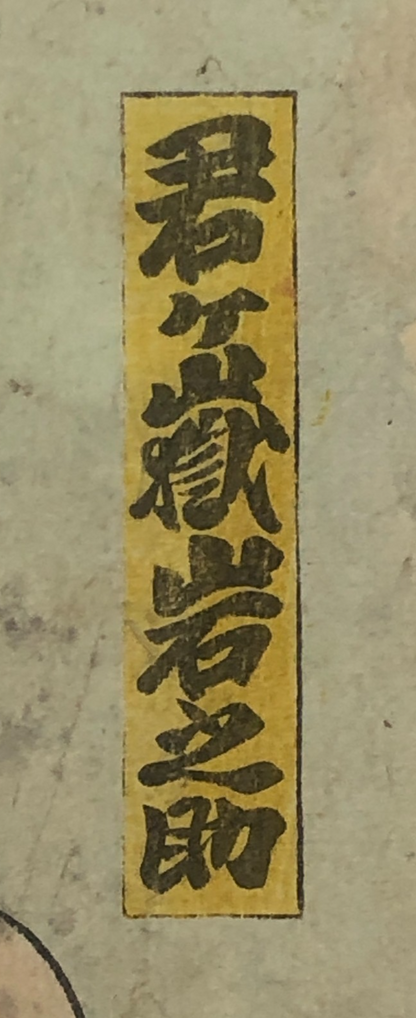 君ヶ嶽岩之助